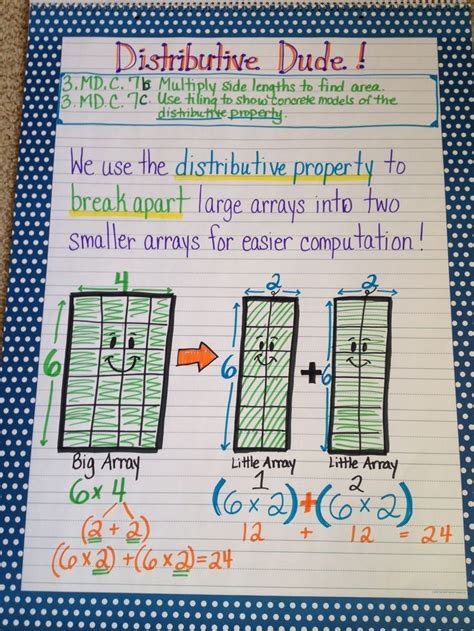 Distributive Dude!
3.MD.C.7b Multiply side lengths to find area.
3.MD.C.7c. Use tiling to show concrete models of the
distributive property.
We use the distributive property to
break apart large arrays into two
smaller arrays for easier computation!
4 2 2
6 6 + 6
Big Array Little Array Little Array
1 2
6 x 4 (6 x 2)+(6 x 2)
(2 + 2) 12 + 12 = 24
(6 x 2) + (6 x 2) = 24